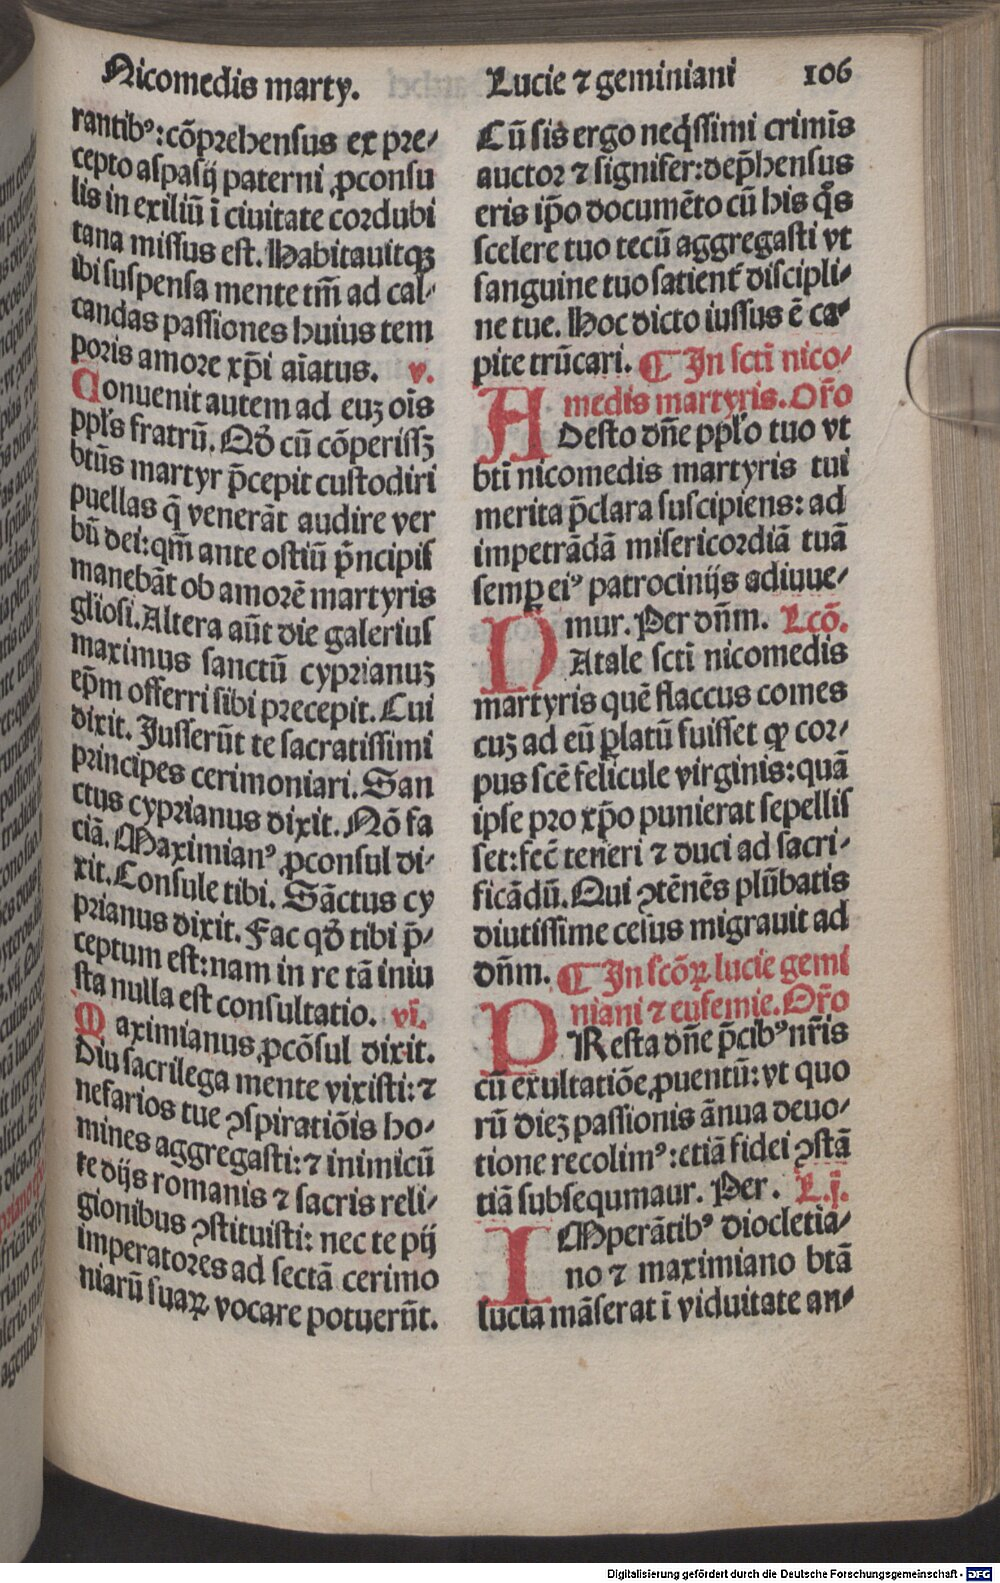 Nicomedis marty.
rantibꝰ: cōprehensus ex pre/
cepto aspasij paterni ꝓconsu
lis in exiliū ī ciuitate cordubi
tana missus est. Habitauitqꝫ
ibi suspensa mente tm̄ ad cal/
candas passiones huius tem
poris amore xp̄i aīatus. v.
Conuenit autem ad euꝫ oīs
ppl̄s fratrū. Qd̄ cū cōperissꝫ
btūs martyr p̄cepit custodiri
puellas q̄ venerāt audire ver
bū dei: qm̄ ante ostiū p̄ncipis
manebāt ob amorē martyris
gl̄iosi. Altera aūt die galerius
maximus sanctū cyprianuꝫ
ep̄m offerri sibi precepit. Cui
dixit. Jusserūt te sacratissimi
principes cerimoniari. San
ctus cyprianus dixit. Nō fa
ciā. Maximianꝰ ꝓconsul di/
xit. Consule tibi. Sāctus cy
prianus dixit. Fac qd̄ tibi p̄/
ceptum est: nam in re tā iniu
sta nulla est consultatio. vi.
Maximianus ꝓcōsul dixit.
Diu sacrilega mente vixisti: ⁊
nefarios tue ꝯspiratiōis ho/
mines aggregasti: ⁊ inimicū
te dijs romanis ⁊ sacris reli/
gionibus ꝯstituisti: nec te pij
imperatores ad sectā cerimo
niarū suaꝝ vocare potuerūt.
Lucie ⁊ geminiani 106
Cū sis ergo neqͥssimi crimīs
auctor ⁊ signifer: dep̄hensus
eris ip̄o documēto cū his qͦs
scelere tuo tecū aggregasti vt
sanguine tuo satient̄ discipli/
ne tue. Hoc dicto iussus ē ca/
pite trūcari. ¶ In scti nico/
medis martyris. Or̄o
ADesto dn̄e ppl̄o tuo vt
bti nicomedis martyris tui
merita p̄clara suscipiens: ad
impetrādā misericordiā tuā
semꝑ eiꝰ patrocinijs adiuue/
mur. Per dn̄m. Lcō.
NAtale scti nicomedis
martyris quē flaccus comes
cuꝫ ad eū ꝑlatū fuisset ꝙ cor/
pus scē felicule virginis: quā
ipse pro xp̄o punierat sepellis
set: fec̄ teneri ⁊ duci ad sacri/
ficādū. Qui ꝯtēnēs plūbatis
diutissime cesus migrauit ad
dn̄m. ¶ In scōꝝ lucie gemi
niani ⁊ eufemie. Or̄o
PResta dn̄e p̄cibꝰ nr̄is
cū exultatiōe ꝓuentū: vt quo
rū dieꝫ passionis ānua deuo/
tione recolimꝰ: etiā fidei ꝯstā
tiā subsequmaur. Per. L.j.
IMperātibꝰ dioclecia/
no ⁊ maximiano btā
lucia māserat ī viduitate an/
Digitalisierung gefördert durch die Deutsche Forschungsgemeinschaft - DFG